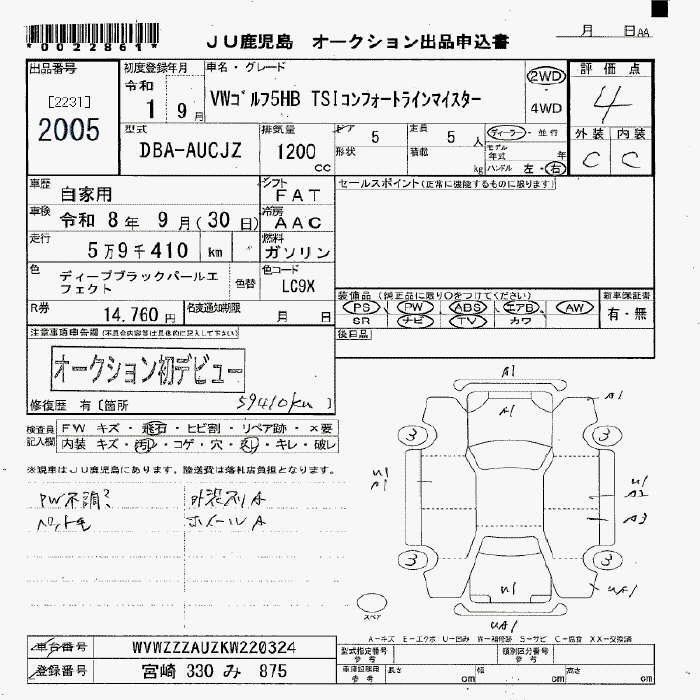 *0022861*
JU鹿児島 オークション出品申込書
月 日AA
出品番号
[2231]
2005
初度登録年月
令和
1 9月
車名・グレード
VWゴルフ5HB TSIコンフォートラインマイスター
2WD
4WD
評価点
4
外装 内装
C C
型式
DBA-AUCJZ
排気量
1200
cc
ドア 5
形状
定員 5 人
積載 kg
ディーラー・並行
モデル年式 年
ハンドル 左・右
車歴 自家用
シフト FAT
車検 令和 8年 9月(30日)
冷房 AAC
走行 5万9千410 km
燃料 ガソリン
色 ディープブラックパールエフェクト
色替
色コード LC9X
R券 14,760円
名変通知期限 月 日
セールスポイント(正常に機能するものに限ります)
装備品(純正品に限り○をつけてください)
PS PW ABS エアB AW
SR ナビ TV カワ
新車保証書
有・無
後日品
注意事項申告欄(不具合内容等は具体的に記入して下さい)
オークション初デビュー
修復歴 有[箇所 59410km ]
検査員記入欄
FW キズ・飛石・ヒビ割・リペア跡・×要
内装 キズ・汚れ・コゲ・穴・スレ・キレ・破レ
※現車はJU鹿児島にあります。陸送費は落札店負担となります。
PW不調? 外装スリA
ペット毛 ホイールA
A1
A1
A1
3
3
U1
A1
U1
A2
A3
3
3
U1
UA1
UA1
スペア
A-キズ E-エクボ U-凹み W-補修跡 S-サビ C-腐食 XX-交換済
車台番号 WVWZZZAUZKW220324
登録番号 宮崎 330 み 875
型式指定番号 参考
類別区分番号 参考
車庫証明用 参考
長さ cm 幅 cm 高さ cm